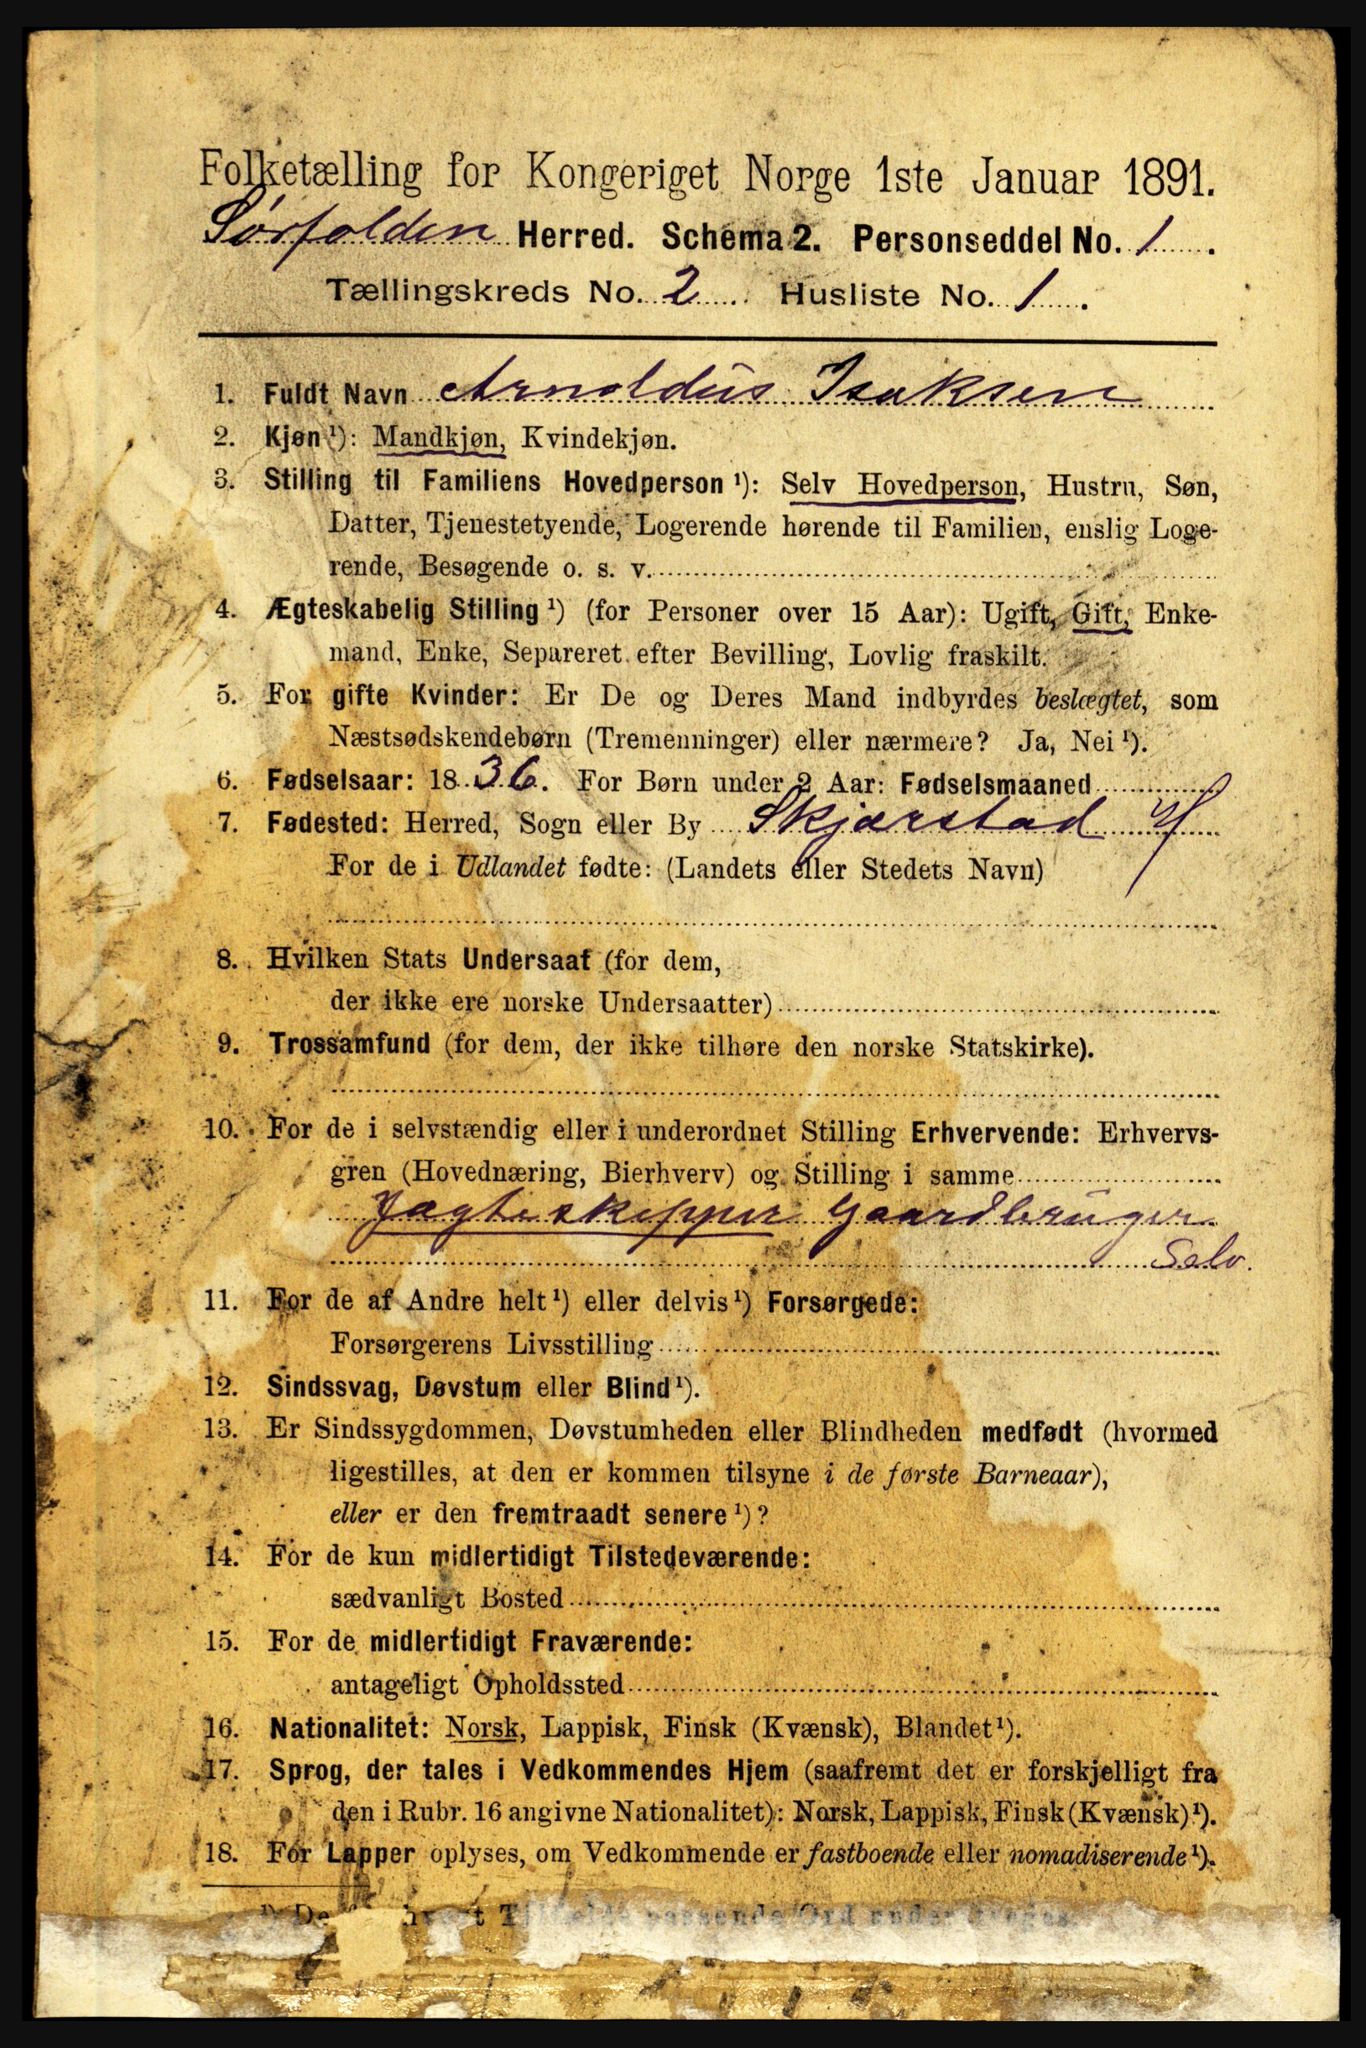 Folketælling for Kongeriget Norge 1ste Januar 1891.
Sørfolden Herred. Schema 2. Personseddel No. 1.
Tællingskreds No. 2. Husliste No. 1.
1. Fuldt Navn Arnoldus Isaksen
2. Kjøn ¹): Mandkjøn, Kvindekjøn.
3. Stilling til Familiens Hovedperson ¹): Selv Hovedperson, Hustru, Søn,
Datter, Tjenestetyende, Logerende hørende til Familien, enslig Loge-
rende, Besøgende o. s. v.
4. Ægteskabelig Stilling ¹) (for Personer over 15 Aar): Ugift, Gift, Enke-
mand, Enke, Separeret efter Bevilling, Lovlig fraskilt.
5. For gifte Kvinder: Er De og Deres Mand indbyrdes beslægtet, som
Næstsødskendebørn (Tremenninger) eller nærmere? Ja, Nei ¹).
6. Fødselsaar: 1836. For Børn under 2 Aar: Fødselsmaaned
7. Fødested: Herred, Sogn eller By Skjærstad
For de i Udlandet fødte: (Landets eller Stedets Navn)
8. Hvilken Stats Undersaat (for dem,
der ikke ere norske Undersaatter)
9. Trossamfund (for dem, der ikke tilhøre den norske Statskirke).
10. For de i selvstændig eller i underordnet Stilling Erhvervende: Erhvervs-
gren (Hovednæring, Bierhverv) og Stilling i samme
Jægteskipper Gaardbruger
Selv.
11. For de af Andre helt ¹) eller delvis ¹) Forsørgede:
Forsørgerens Livsstilling
12. Sindssvag, Døvstum eller Blind ¹).
13. Er Sindssygdommen, Døvstumheden eller Blindheden medfødt (hvormed
ligestilles, at den er kommen tilsyne i de første Barneaar),
eller er den fremtraadt senere ¹)?
14. For de kun midlertidigt Tilstedeværende:
sædvanligt Bosted
15. For de midlertidigt Fraværende:
antageligt Opholdssted
16. Nationalitet: Norsk, Lappisk, Finsk (Kvænsk), Blandet ¹).
17. Sprog, der tales i Vedkommendes Hjem (saafremt det er forskjelligt fra
den i Rubr. 16 angivne Nationalitet): Norsk, Lappisk, Finsk (Kvænsk) ¹).
18. For Lapper oplyses, om Vedkommende er fastboende eller nomadiserende ¹).
passende Ord under